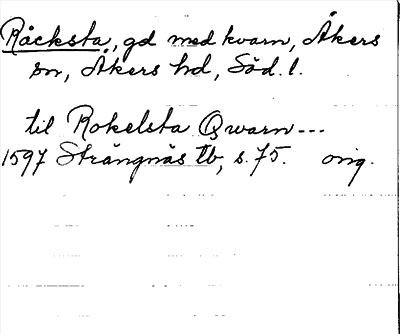 Råcksta, gd med kvarn, Åkers
sn, Åkers hd, Söd. l.
til Rokelsta Qwarn---
1597 Strängnäs tb, s. 75. orig.